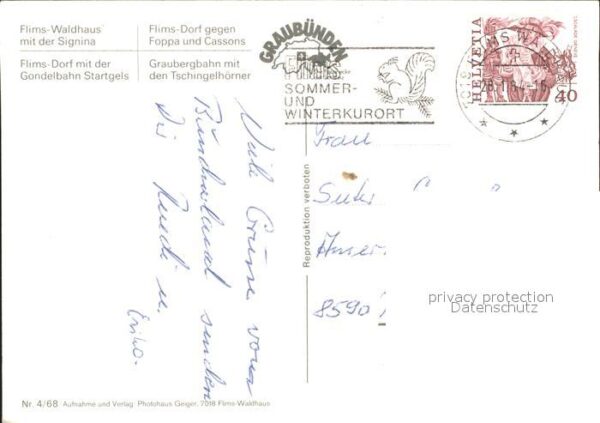 Flims-Waldhaus
mit der Signina
Flims-Dorf gegen
Foppa und Cassons
Flims-Dorf mit der
Gondelbahn Startgels
Graubergbahn mit
den Tschingelhörner
GRAUBÜNDEN
Flims
SOMMER-
UND
WINTERKURORT
HELVETIA
40
Viele Grüsse vom
Bündnerland senden
Ruedi u.
Erika.
Frau
Suter
8590
Reproduktion verboten
privacy protection
Datenschutz
Nr. 4/68 Aufnahme und Verlag Photohaus Geiger, 7018 Flims-Waldhaus